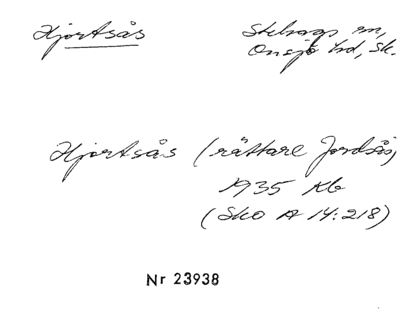 Hjortsås
Stehags sn,
Onsjö hd, Sk.
Hjortsås (rättare Jordsås,
1935 Kb
(Sko A 14:218)
Nr 23938